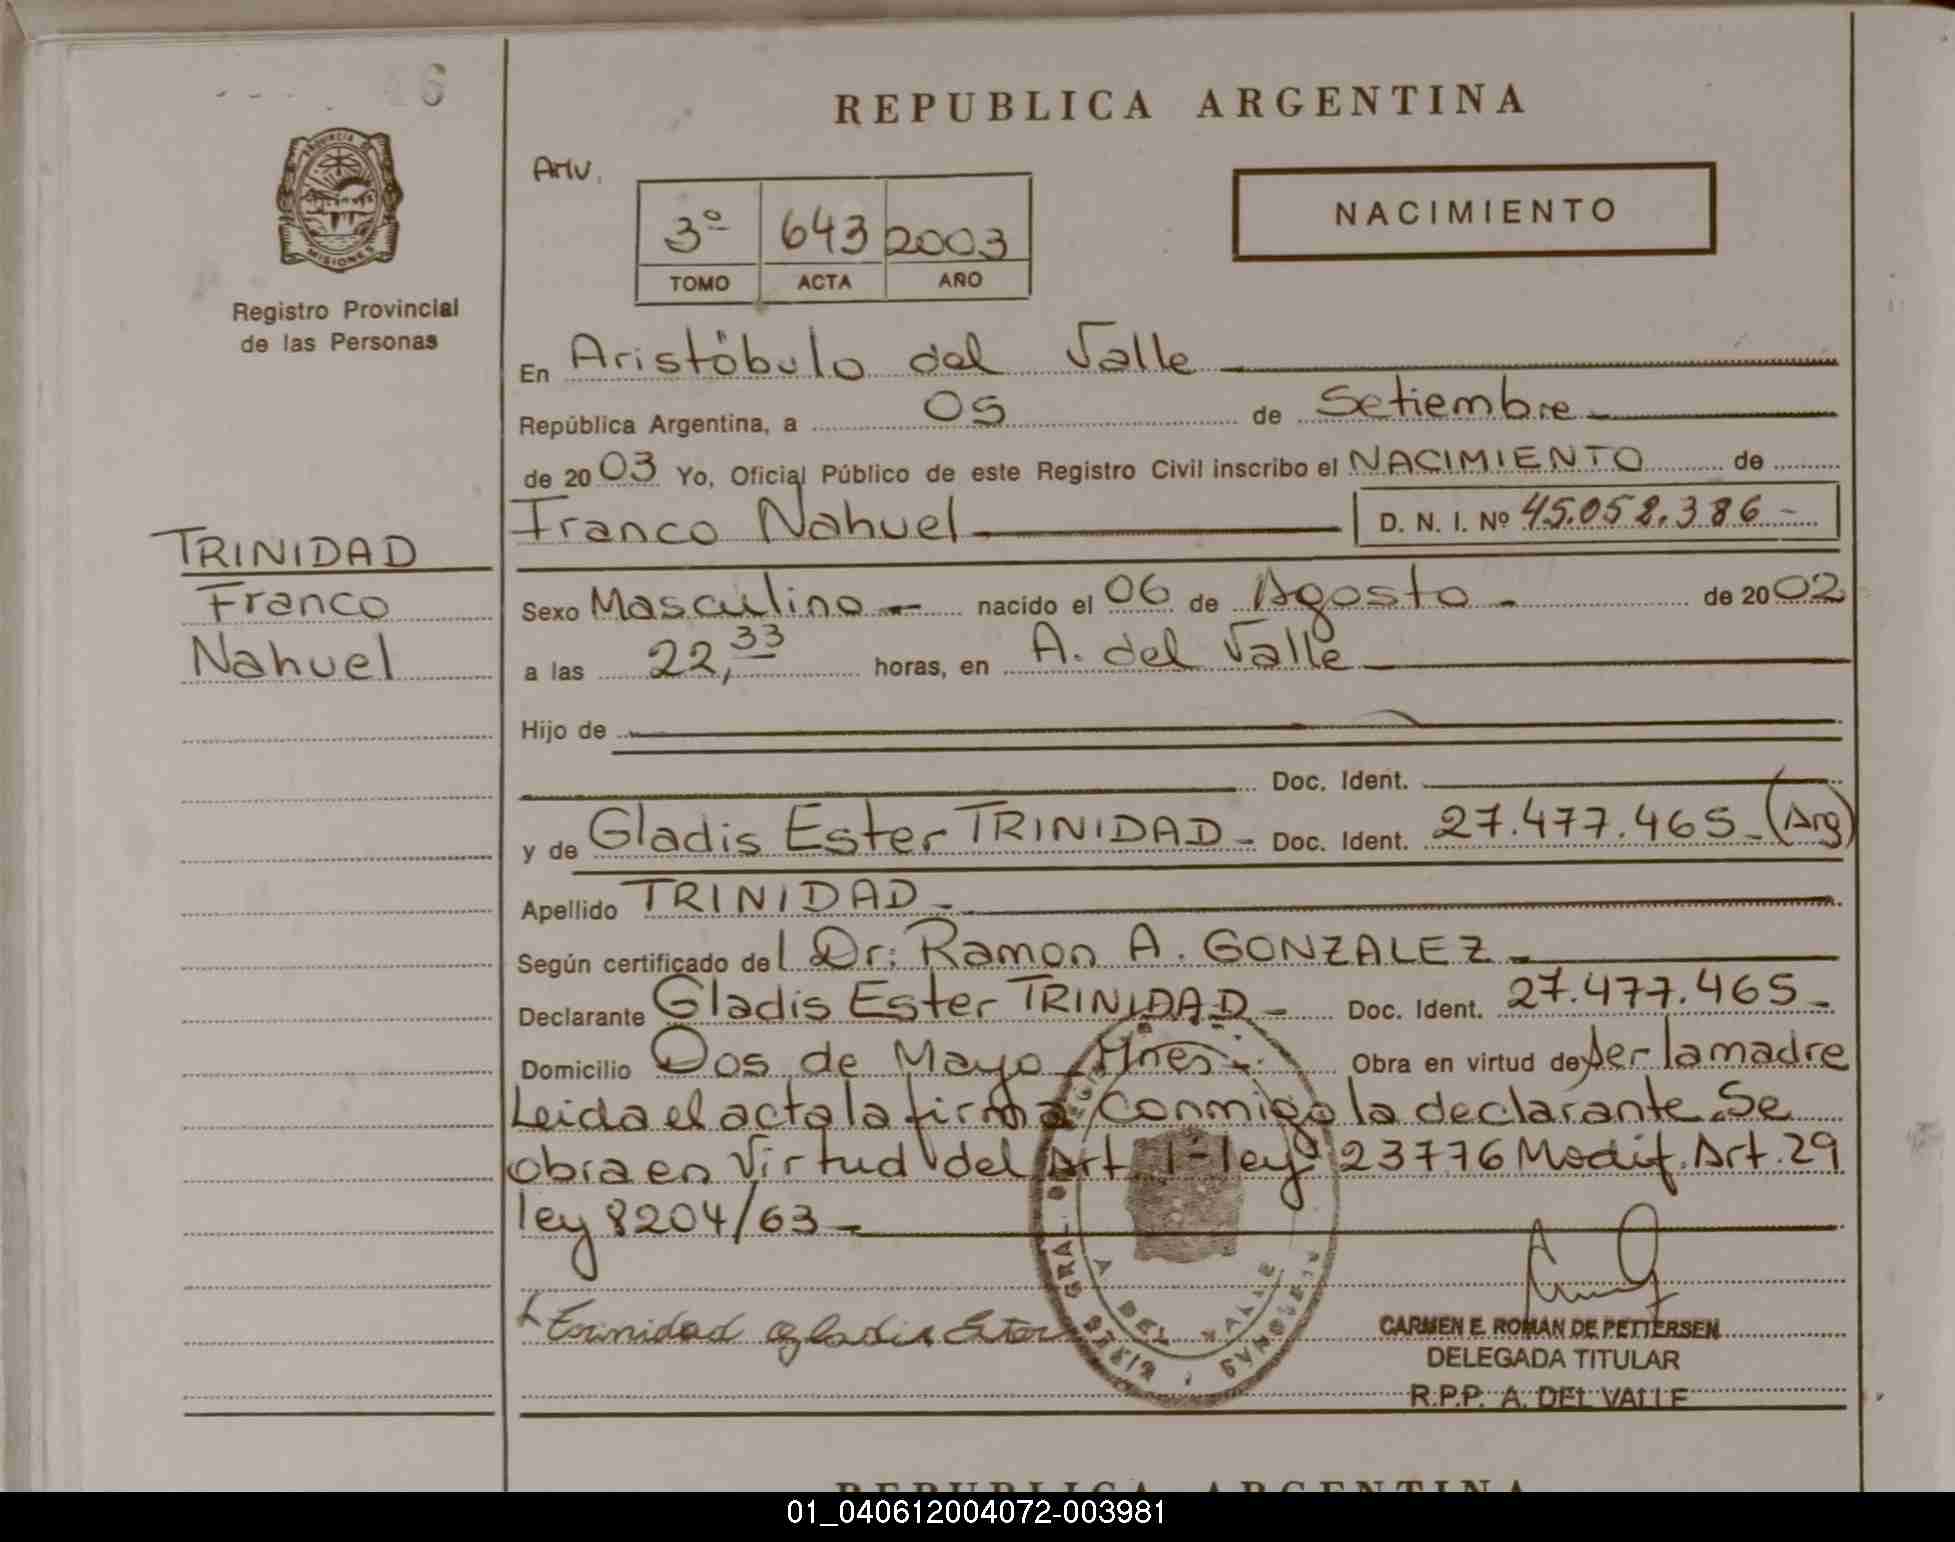 6
REPUBLICA ARGENTINA
PROVINCIA
MISIONES
3º 643 2003
TOMO ACTA AÑO
NACIMIENTO
Registro Provincial
de las Personas
En Aristóbulo del Valle
República Argentina, a 05 de Setiembre
de 2003 Yo, Oficial Público de este Registro Civil inscribo el NACIMIENTO de
Franco Nahuel D. N. I. Nº 45.052.386
TRINIDAD
Franco
Nahuel
Sexo Masculino nacido el 06 de Agosto de 2002
a las 22,33 horas, en A. del Valle
Hijo de
Doc. Ident.
y de Gladis Ester TRINIDAD Doc. Ident. 27.477.465 (Arg)
Apellido TRINIDAD
Según certificado del Dr: Ramon A. GONZALEZ
Declarante Gladis Ester TRINIDAD Doc. Ident. 27.477.465
Domicilio Dos de Mayo Mnes Obra en virtud de ser la madre
Leida el acta la firma conmigo la declarante. Se
obra en virtud del Art. 1º ley 23776 Modif. Art. 29
ley 8204/63
Trinidad Gladis Ester
A DEL VALLE
CARMEN E. ROMAN DE PETTERSEN
DELEGADA TITULAR
R.P.P. A. DEL VALLE
REPUBLICA ARGENTINA
01_040612004072-003981